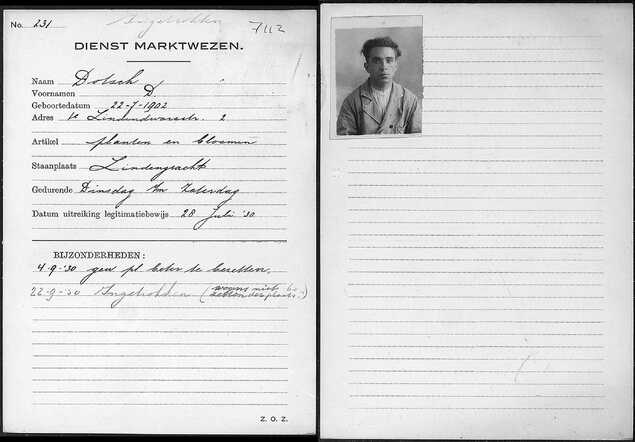 No. 231 Ingetrokken 7112
DIENST MARKTWEZEN.
Naam Dotsch
Voornamen D.
Geboortedatum 22-7-1902
Adres 1e Lindendwarsstr. 2
Artikel planten en bloemen
Staanplaats Lindengracht
Gedurende Dinsdag t/m Zaterdag
Datum uitreiking legitimatiebewijs 28 Juli '30
BIJZONDERHEDEN:
4-9-'30 geen pl beter te bezetten.
22-9-'30 Ingetrokken (wegens niet be-
zetten der plaats.)
Z. O. Z.